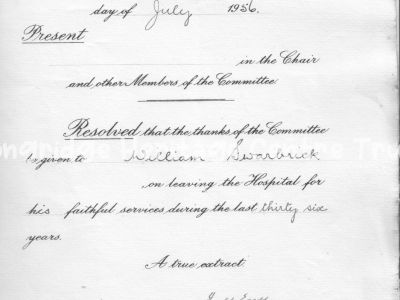 day of July 1956.
Present
in the Chair
and other Members of the Committee.
Resolved that the thanks of the Committee
be given to William Swarbrick
on leaving the Hospital for
his faithful services during the last thirty six
years.
A true extract.